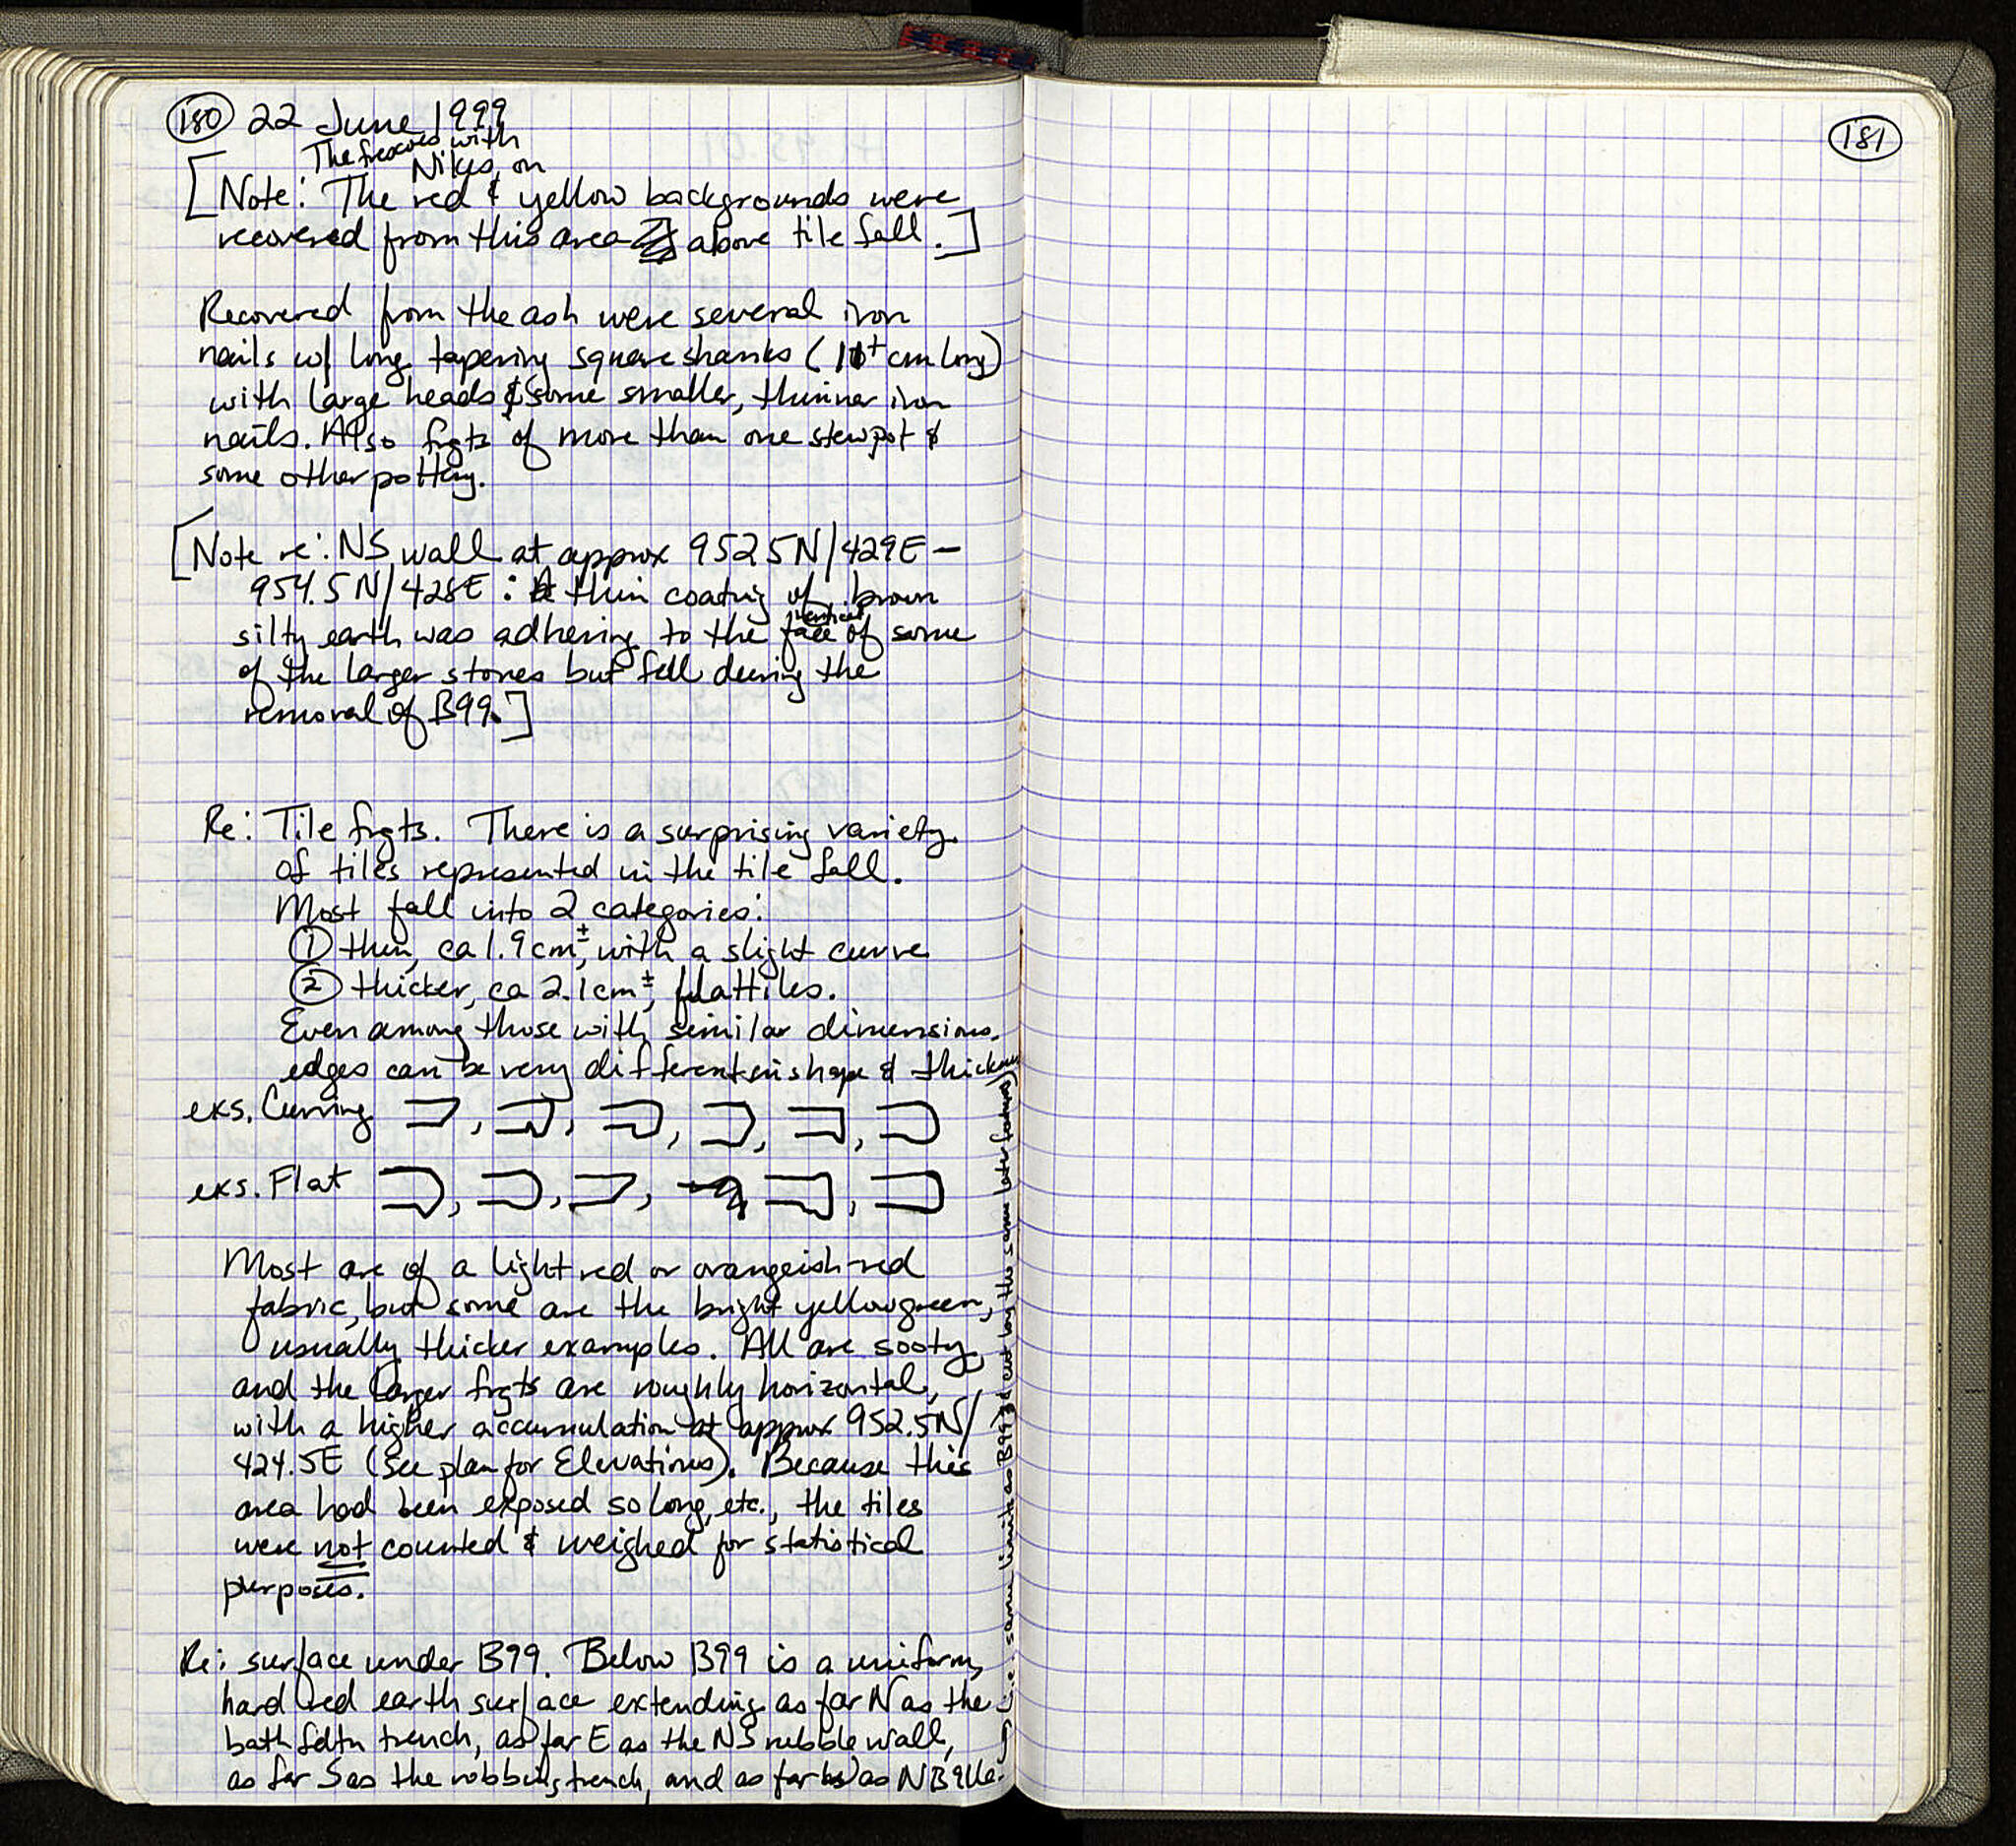 180 22 June 1999
The frescoes with
Nikes, on
[Note: The red & yellow backgrounds were
recovered from this area above tile fall.]
Recovered from the ash were several iron
nails w/ long tapering square shanks (10+ cm long)
with large heads & some smaller, thinner iron
nails. Also frgts of more than one stewpot &
some other pottery.
[Note re: NS wall at approx 952.5N/429E –
954.5N/428E: A thin coating of brown
vertical
silty earth was adhering to the face of some
of the larger stones but fell during the
removal of B99.]
Re: Tile frgts. There is a surprising variety
of tiles represented in the tile fall.
Most fall into 2 categories:
① thin, ca 1.9cm±, with a slight curve
② thicker, ca 2.1cm±, flat tiles.
Even among those with similar dimensions,
edges can be very different in shape & thickness
exs. Curving , , , , ,
exs. Flat , , , ,
Most are of a light red or orangeish-red
fabric, but some are the bright yellow green,
usually thicker examples. All are sooty,
and the larger frgts are roughly horizontal,
with a higher accumulation at approx 952.5N/
424.5E (see plan for Elevations). Because this
area had been exposed so long, etc., the tiles
were not counted & weighed for statistical
purposes.
Re: surface under B99. Below B99 is a uniform,
hard red earth surface extending as far N as the
bath fdtn trench, as far E as the NS rubble wall,
as far S as the robbing trench, and as far W as
(i.e. same limits as B99 & cut by the same later features)
181